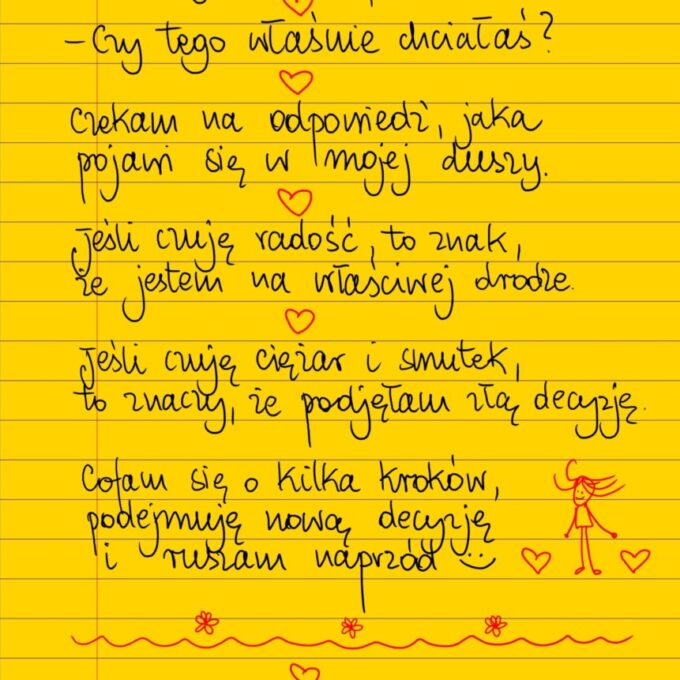 - Czy tego właśnie chciałaś?
Czekam na odpowiedź, jaka
pojawi się w mojej duszy.
Jeśli czuję radość, to znak,
że jestem na właściwej drodze.
Jeśli czuję ciężar i smutek,
to znaczy, że podjęłam złą decyzję.
Cofam się o kilka kroków,
podejmuję nową decyzję
i ruszam naprzód